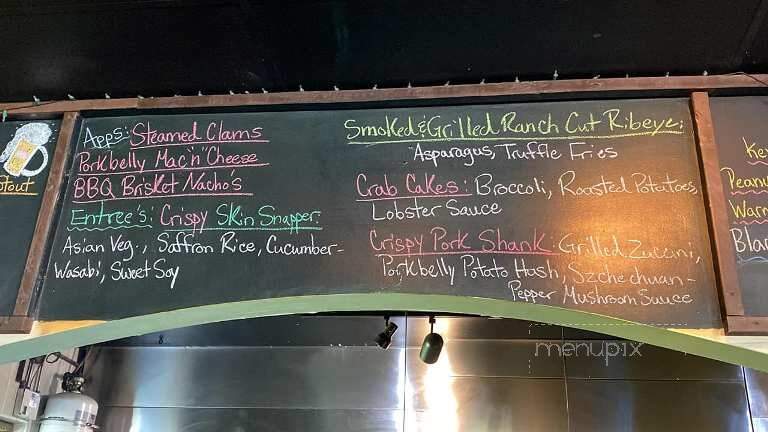 Apps: Steamed Clams
Porkbelly Mac 'n' Cheese
BBQ Brisket Nacho's
Entree's: Crispy Skin Snapper:
Asian Veg., Saffron Rice, Cucumber-
Wasabi, Sweet Soy
Smoked & Grilled Ranch Cut Ribeye:
Asparagus, Truffle Fries
Crab Cakes: Broccoli, Roasted Potatoes,
Lobster Sauce
Crispy Pork Shank: Grilled Zuccini,
Porkbelly Potato Hash, Szchechuan-
Pepper Mushroom Sauce
tout
Ke
Peanu
Warm
Bla
menupix